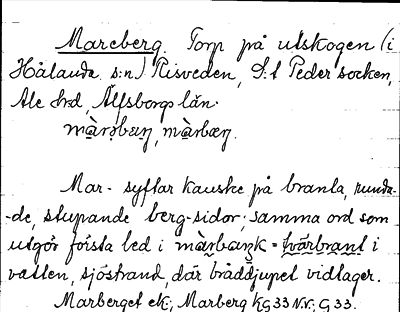 Marcberg. Torp på utskogen (i
Hålanda s:n) Risveden, S:t Peder socken,
Ale hrd, Älfsborgs län.
màrsbærj, màrbærj.
Mar- syftar kanske på branta, runda-
-de, stupande berg-sidor; samma ord som
utgör första led i màrbaŋk = tvärbrant i
vatten, sjöstrand, där bråddjupet vidtager.
Marberget etc., Marberg KG33 N.V., G 33.